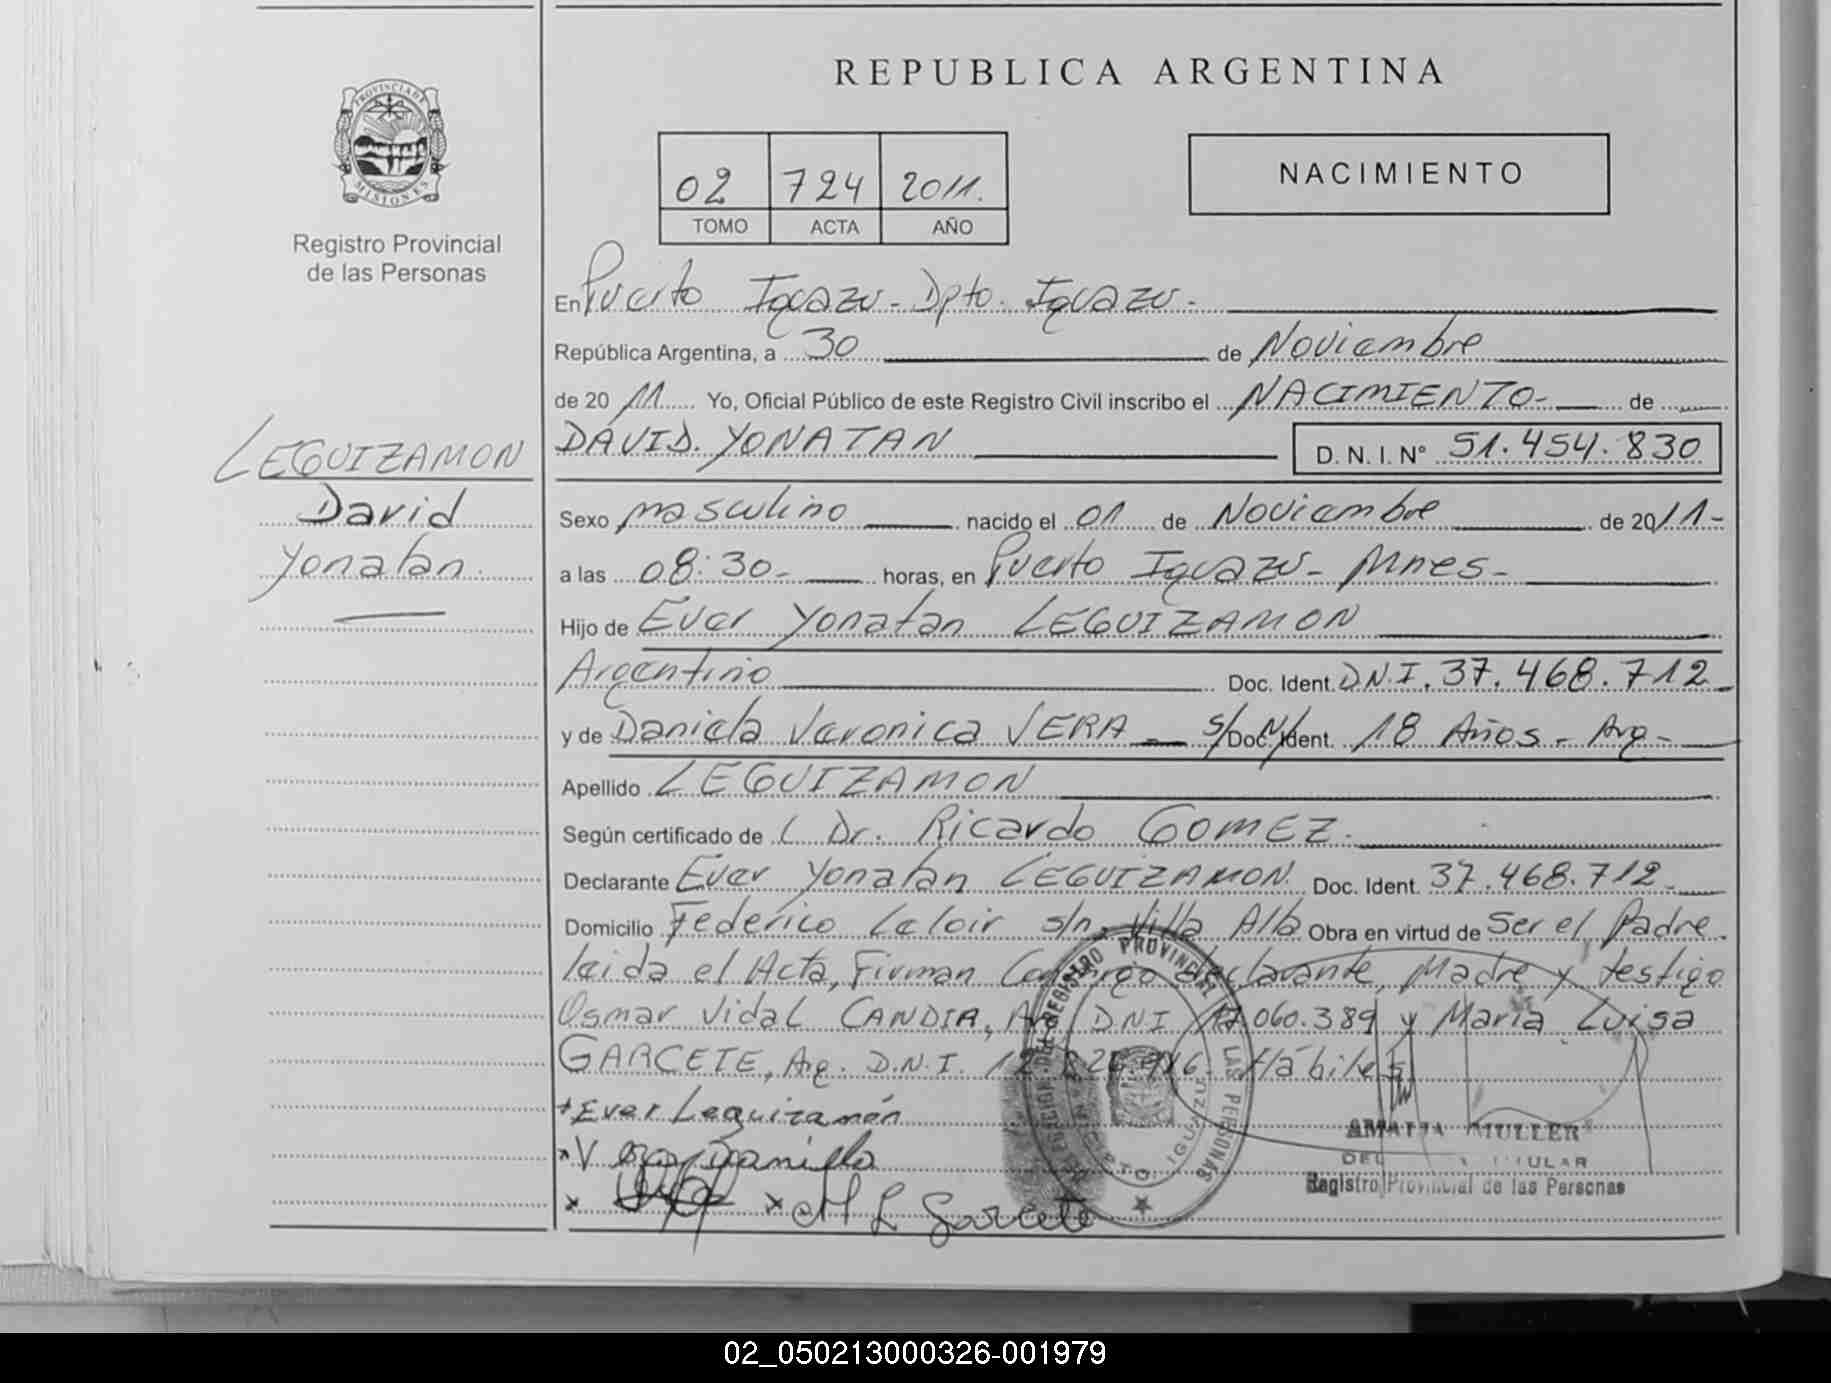 PROVINCIA DE
MISIONES
Registro Provincial
de las Personas
LEGUIZAMON
David
Yonatan.
REPUBLICA ARGENTINA
02 724 2011.
TOMO ACTA AÑO
NACIMIENTO
En Puerto Iguazu - Dpto. Iguazu -
República Argentina, a 30 de Noviembre
de 20 11 Yo, Oficial Público de este Registro Civil inscribo el NACIMIENTO- de
DAVID. YONATAN D. N. I. N° 51.454.830
Sexo masculino nacido el 01 de Noviembre de 20 11-
a las 08:30- horas, en Puerto Iguazu - Mnes-
Hijo de Ever Yonatan LEGUIZAMON
Argentino Doc. Ident. D.N.I. 37.468.712
y de Daniela Veronica VERA s/ Doc. N/ Ident. 18 Años - Arg-
Apellido LEGUIZAMON
Según certificado de Dr. Ricardo GOMEZ.
Declarante Ever Yonatan LEGUIZAMON Doc. Ident. 37.468.712
Domicilio Federico Leloir s/n. Villa Alba Obra en virtud de Ser el Padre.
leida el Acta, Firman Conmigo declarante, Madre y testigo
Osmar Vidal CANDIA, Arg DNI 060.389 y Maria Luisa
GARCETE, Arg. D.N.I. Hábiles
+ Ever Leguizamón
x V
x x M L Garcete
DEL REGISTRO PROVINCIAL DE LAS PERSONAS
DPTO. IGUAZU
MULLER
TITULAR
Registro Provincial de las Personas
02_050213000326-001979